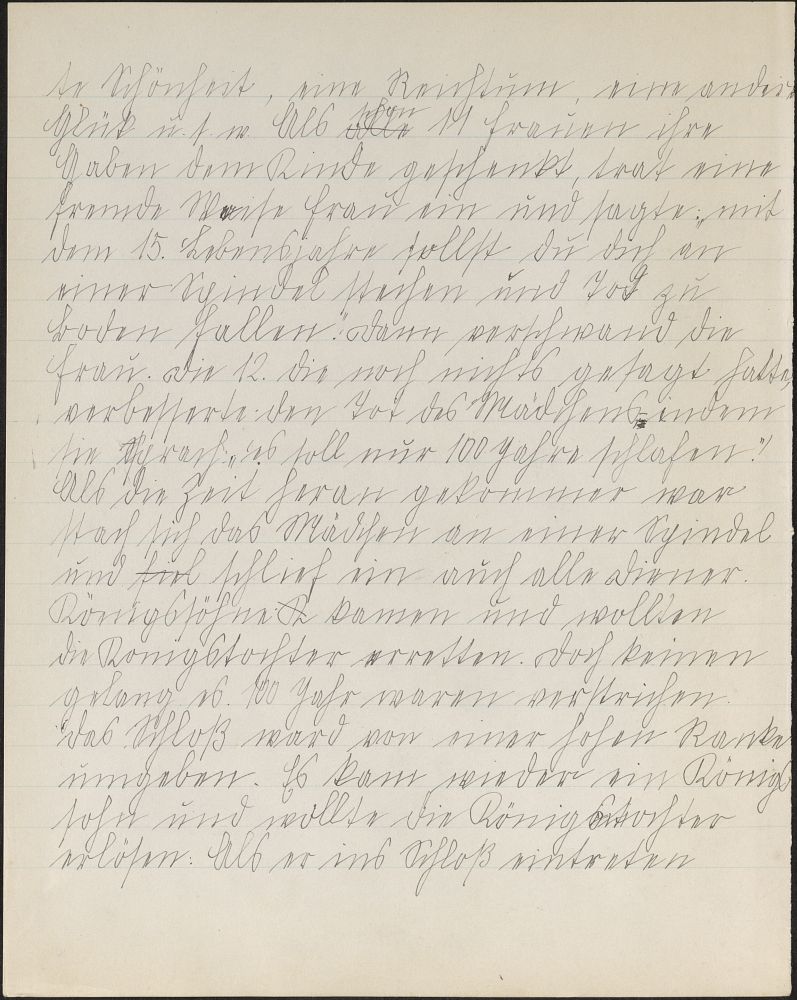 te Schönheit, eine Reichtum, eine andere
Glük u.s.w. Als schon 11 Frauen ihre
Gaben dem Kinde geschenkt, trat eine
fremde Weise Frau ein und sagte: „mit
dem 15. Lebensjahre sollst du dich an
einer Spindel stechen und Tod zu
Boden fallen." Dann verschwand die
Frau. Die 12. die noch nichts gesagt hatte,
verbesserte den Tod des Mädchens indem
sie sprach: „es soll nur 100 Jahre schlafen."
Als die Zeit heran gekommen war
stach sich das Mädchen an einer Spindel
und fiel schlief ein auch alle Diener.
Königssöhne kamen und wollten
die Königstochter erretten. Doch keinen
gelang es. 100 Jahr waren verstrichen.
Das Schloß ward von einer hohen Ranke
umgeben. Es kam wieder ein Königs
sohn und wollte die Königstochter
erlösen. Als er ins Schloß eintreten